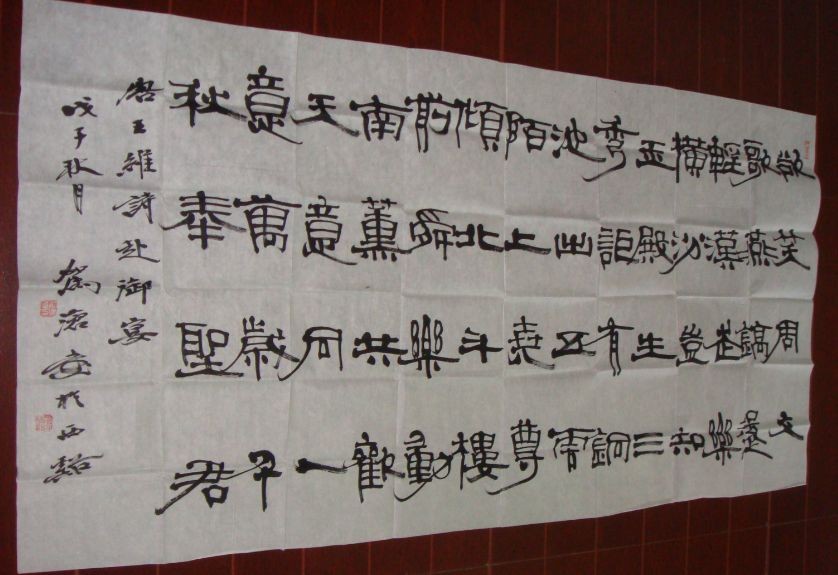 欲笑周文
歌燕鎬還
輕漢武樂
橫汾豈知
玉殿生三
秀詎有銅
池出五雲
陌上堯尊
傾北斗樓
前舜樂動
南薰共歡
天意同一
意萬歲千
秋奉聖君
唐王維詩赴御宴
戊子秋月 於西谿